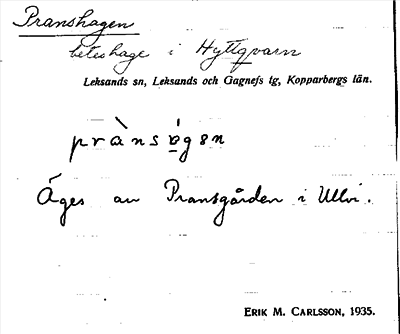 Pranshagen
beteshage i Hyttqvarn
Leksands sn, Leksands och Gagnefs tg, Kopparbergs län.
prànsə̀gən
Äges av Pransgården i Ullvi.
ERIK M. CARLSSON, 1935.